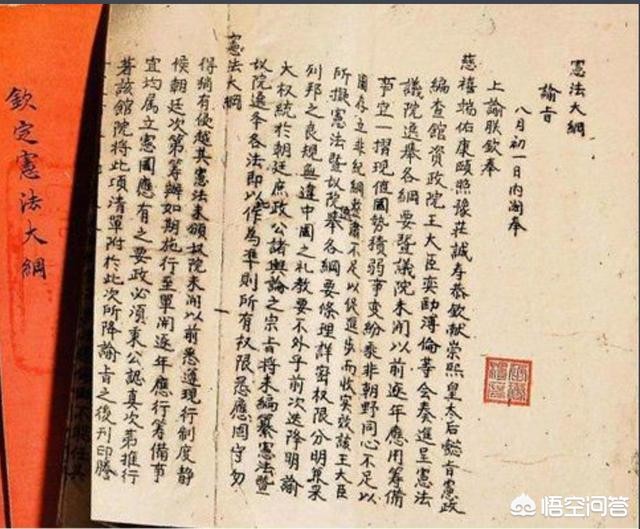 憲法大綱
諭旨
八月初一日內閣奉
上諭朕欽奉
慈禧端佑康頤照豫莊誠壽恭欽獻崇熙皇太后懿旨憲政
編查館資政院王大臣奕劻溥倫等會奏進呈憲法
議院選舉各綱要暨議院未開以前逐年應用籌備
事宜一摺現值國勢積弱事變紛乘非朝野同心不足以
圖存立非紀綱整肅不足以促進步而收實效該王大臣
所擬憲法暨议院選舉各綱要條理詳密權限分明兼采
列邦之良規無違中國之礼教要不外乎前次迭降明諭
大权統於朝廷庶政公諸輿論之宗旨將來編纂憲法暨
议院選舉各法即以作為準則所有權限悉應固守勿
憲法大綱
得稍有侵越其憲法未頒议院未開以前悉遵現行制度靜
候朝廷次第籌辦如期施行至單開逐年應行籌備事
宜均属立憲國應有之要政必須秉公認真次第推行
著該館院將此項清單附於此次所降諭旨之後刊印謄
欽定憲法大綱
悟空问答